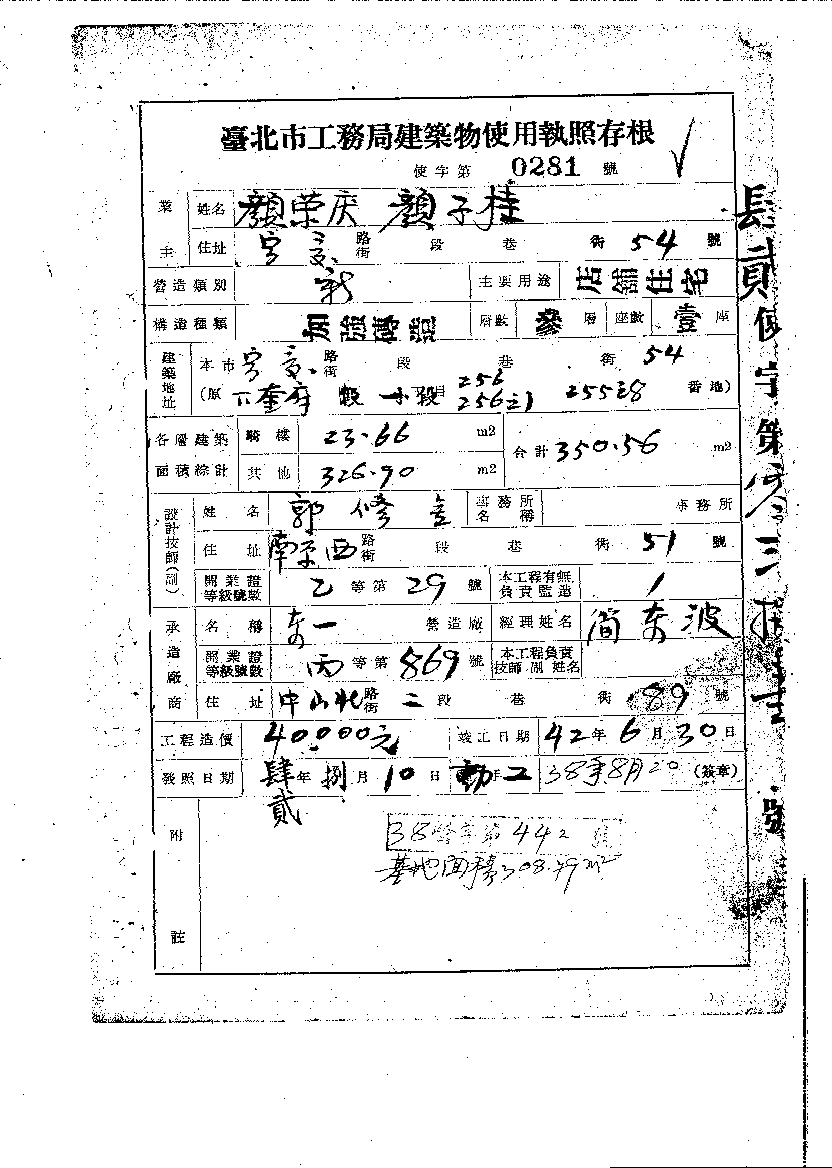 臺北市工務局建築物使用執照存根
使字第 0281 號
業主 姓名 顏榮庆 顏子桂
住址 路街 段 巷 衖 54 號
營造類別 新 主要用途 店舖住宅
構造種類 加強磚造 層數 參層 座數 壹座
建築地址 本市 路街 段 巷 衖 54
(原 下奎府 段 小段 256 256之1 255之8 番地)
各層建築面積綜計 騎樓 23.66 m2 合計 350.56 m2
其他 326.90 m2
設計技師(副) 姓名 郭修 事務所名稱 事務所
住址 南京西路街 段 巷 衖 51 號
開業證等級號數 乙等第 29 號 本工程有無負責監造
承造廠商 名稱 東一 營造廠 經理姓名 簡東波
開業證等級號數 丙等第 869 號 本工程負責技師副姓名
住址 中山北路街 二段 巷 衖 89 號
工程造價 40.000元 竣工日期 42年 6月 30日
發照日期 肆貳年 捌月 10日 動工 38年8月20 (簽章)
附註
38 字第 442 號
基地面積 308.79m2
使字第
號